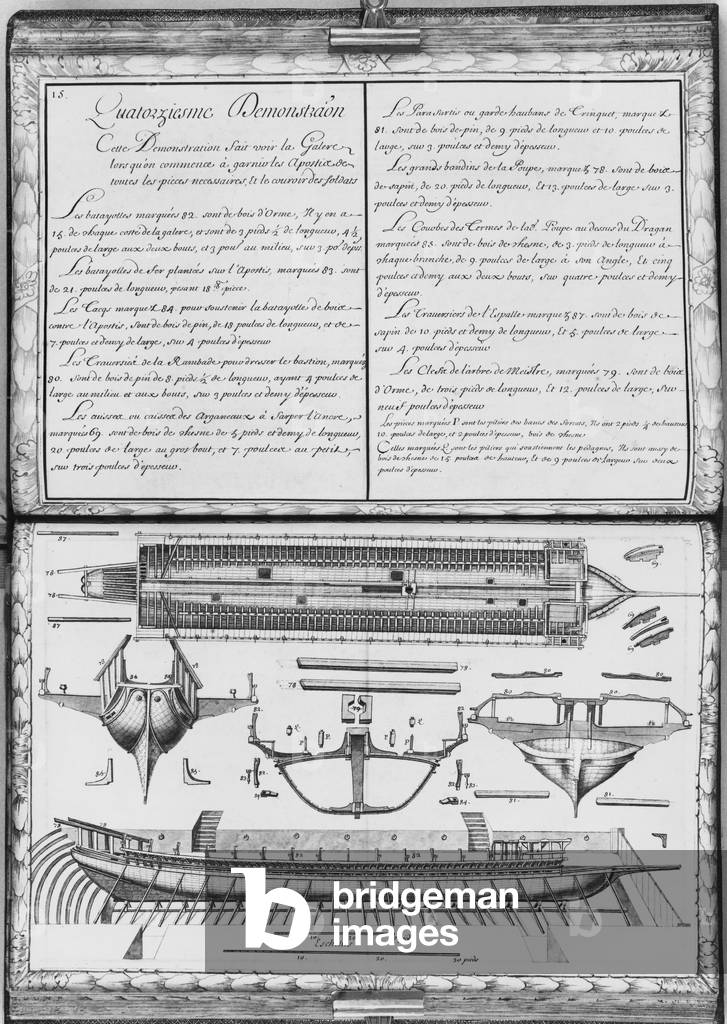 15.
Quatorziesme Demonstra'on
Cette Demonstration fait voir la Galere
lors qu'on commence à garnir les Apostis de
toutes les pieces necessaires, Et le couroir des soldats
Les batayolles marquées 82. sont de bois d'Orme, Il y en a
15. de chaque costé de la galere, et sont de 3 pieds ½ de longueur, 4 ½
poulces de large aux deux bouts, et 3 poul. au milieu, sur 3. po. d'épais.
Les batayolles de fer plantées sur l'Apostis, marquées 83. sont
de 21. poulces de longueur, pesant 18 piece.
Les Tacqs marquez 84. pour soustenir la batayolle de bois
contre l'Apostis, sont de bois de pin, de 18 poulces de longueur, et de
7. poulces et demy de large, sur 4 poulces d'épesseur
Les Traversié de la Rambade pour dresser le bastion, marquez
80. sont de bois de pin de 8. pieds ½ de longueur, ayant 4 poulces de
large au milieu et aux bouts, sur 3 poulces et demy d'épesseur.
Les caisses ou caisses des Arganeaux à Sarper l'ancre,
marquées 69. sont de bois de chesne de 5 pieds et demy de longueur,
20 poulces de large au gros bout, et 7. poulces au petit,
sur trois poulces d'épesseur.
Les Parasartis ou garde haubans de Trinquet, marquez
81. sont de bois de pin, de 9 pieds de longueur et 10. poulces de
large, sur 3. poulces et demy d'épesseur.
Les grands bandins de la Poupe, marquez 78. sont de bois
de sapin, de 20. pieds de longueur, Et 13. poulces de large sur 3.
poulces et demy d'épesseur.
Les Courbes des Termes de lad. Poupe au dessus du Dragan
marquées 85. sont de bois de chesne, de 3. pieds de longueur à
chaque branche, de 9. poulces de large à son Angle, Et cinq
poulces et demy aux deux bouts, sur quatre poulces et demy
d'épesseur.
Les Traversiers de l'Espalle marquez 87. sont de bois de
sapin de 10. pieds et demy de longueur, Et 5. poulces de large
sur 4. poulces d'épesseur
Les Clefs de l'arbre de Meistre, marquées 79. sont de bois
d'Orme, de trois pieds de longueur, Et 12. poulces de large, sur
neuf poulces d'épesseur
Les pieces marquées P. sont les pitiers ou bancs des forcats, Ils ont 2 pieds ¼ de hauteur
10. poulces de large, et 2 poulces d'épesseur, bois de chesne
Celles marquées Q. sont les pitiers qui soustiennent les pédagnes, Ils sont aussy de
bois de chesne de 15 poulces de hauteur, Et de 9 poulces de largeur sur deux
poulces d'épesseur.
87.
78
78
87
69.
69
69
79.
78
79
80
80
80
82
82
P
P
83
82
82
83
84
84
85
85
81
81
82
82
bridgeman
images
10.
20.
30 pieds